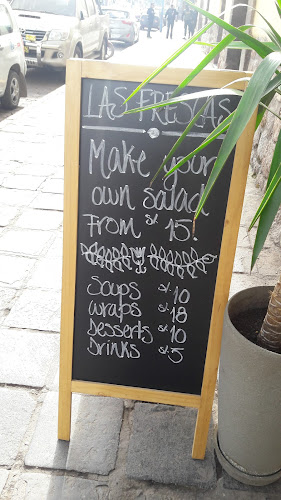 LAS FRESCAS
Make your
own salad
From s/. 15.
Soups s/. 10
wraps s/. 18
Desserts s/. 10
Drinks s/. 5